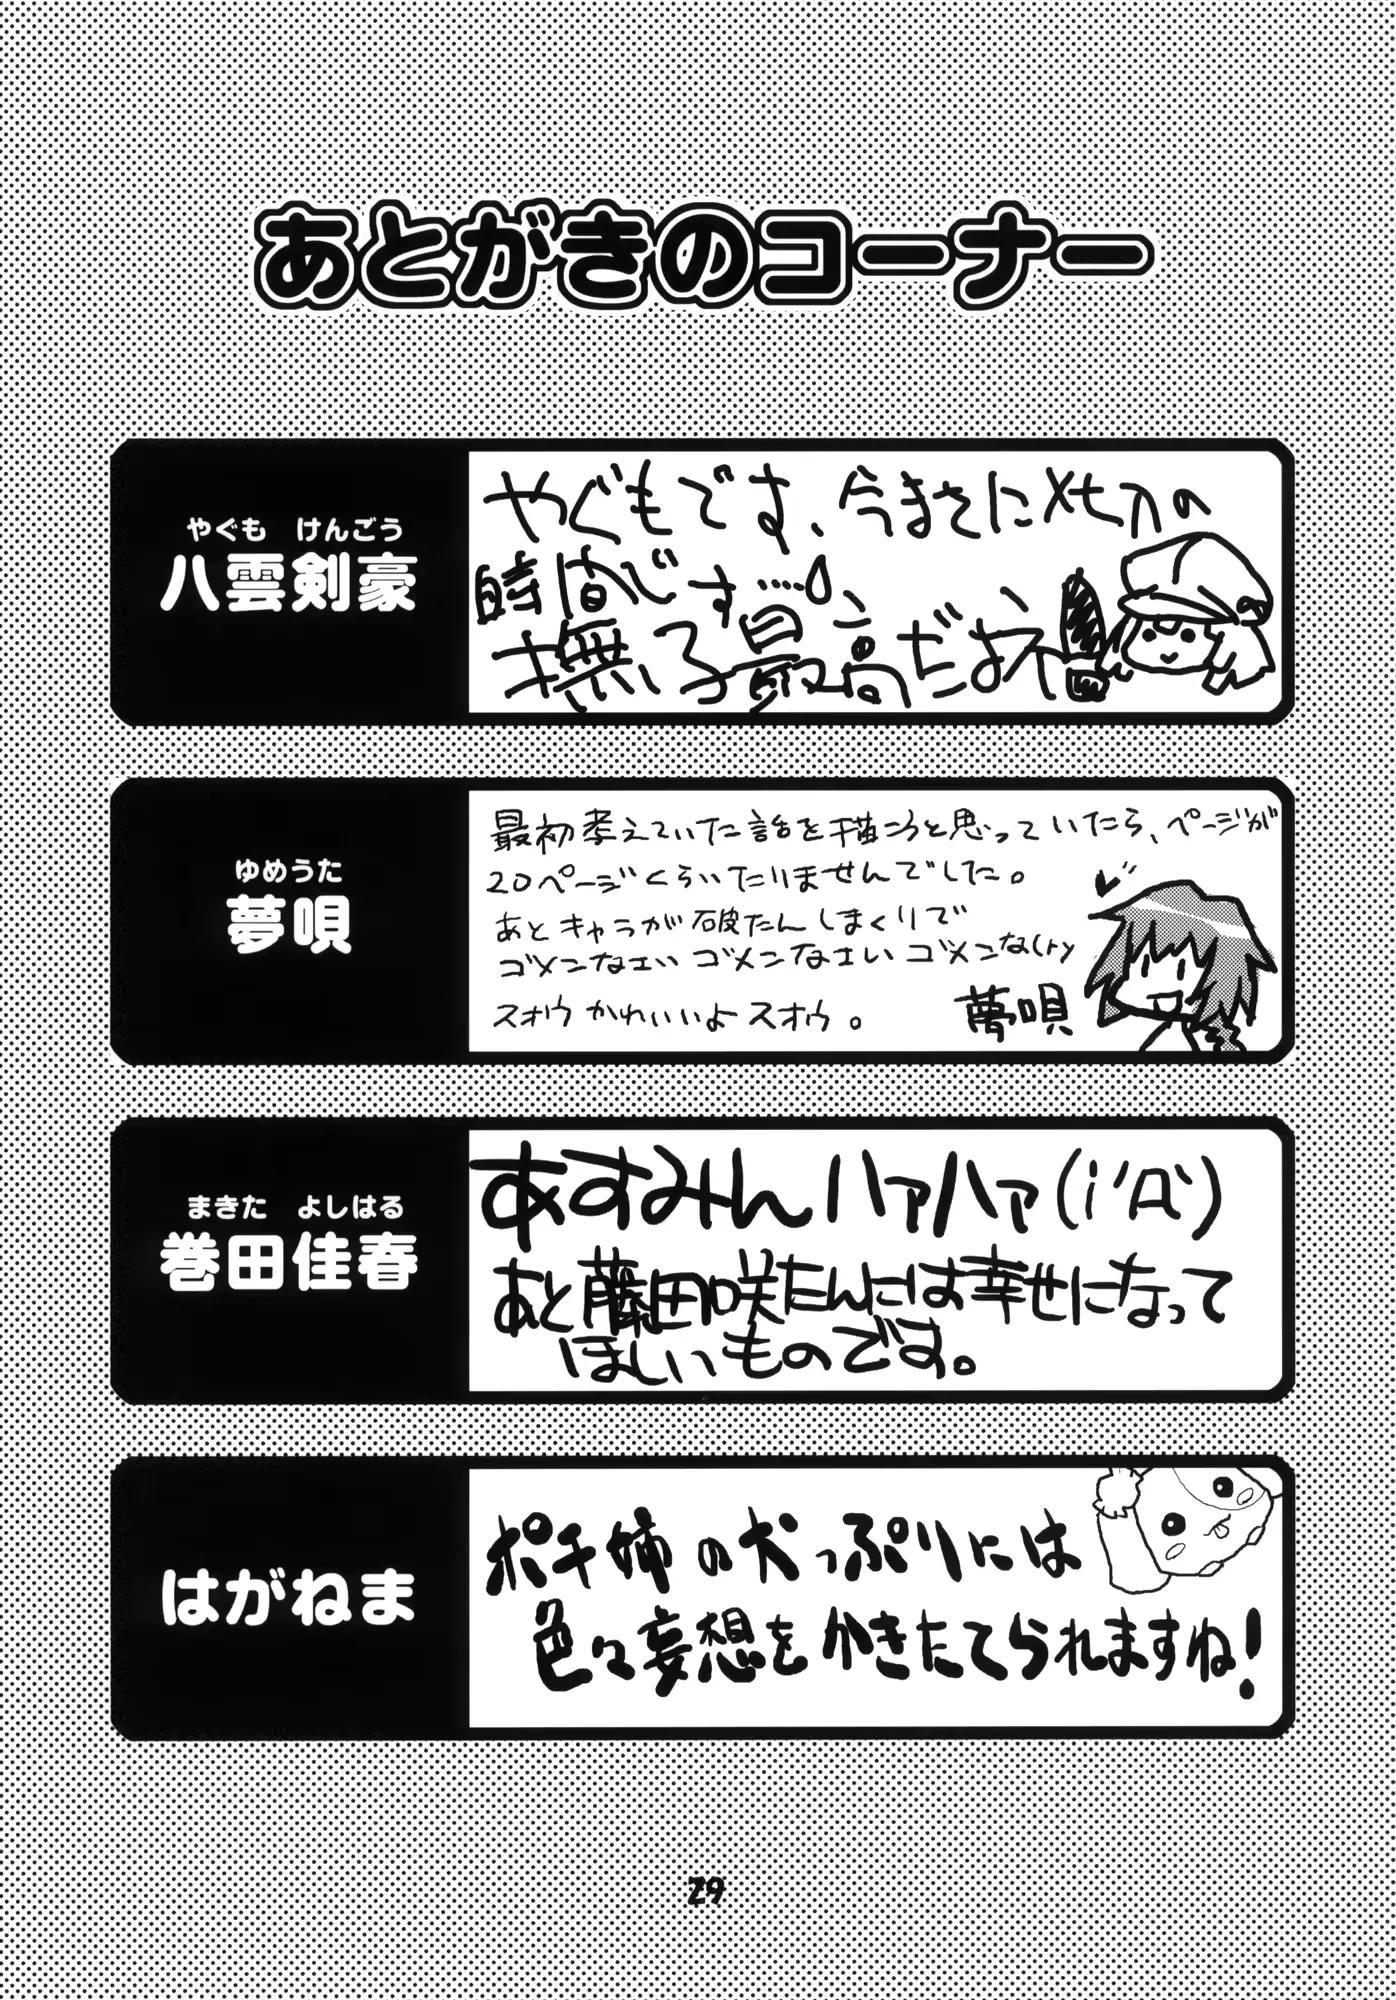 あとがきのコーナー
やぐも けんごう
八雲剣豪
やぐもです、今まさに〆切の
時間じ
す…。
撫子最高だよネ!
ゆめうた
夢唄
最初考えていた話を描こうと思っていたら、ページが
20ページくらいたりませんでした。
あとキャラが破たんしまくりで
ゴメンなさい ゴメンなさい ゴメンな(ry
スオウかわいいよスオウ。
夢唄
まきた よしはる
巻田佳春
あすみんハァハァ(;´Д`)
あと藤田咲たんには幸せになって
ほしいものです。
はがねま
ポチ姉の犬っぷりには
色々妄想をかきたてられますね!
29